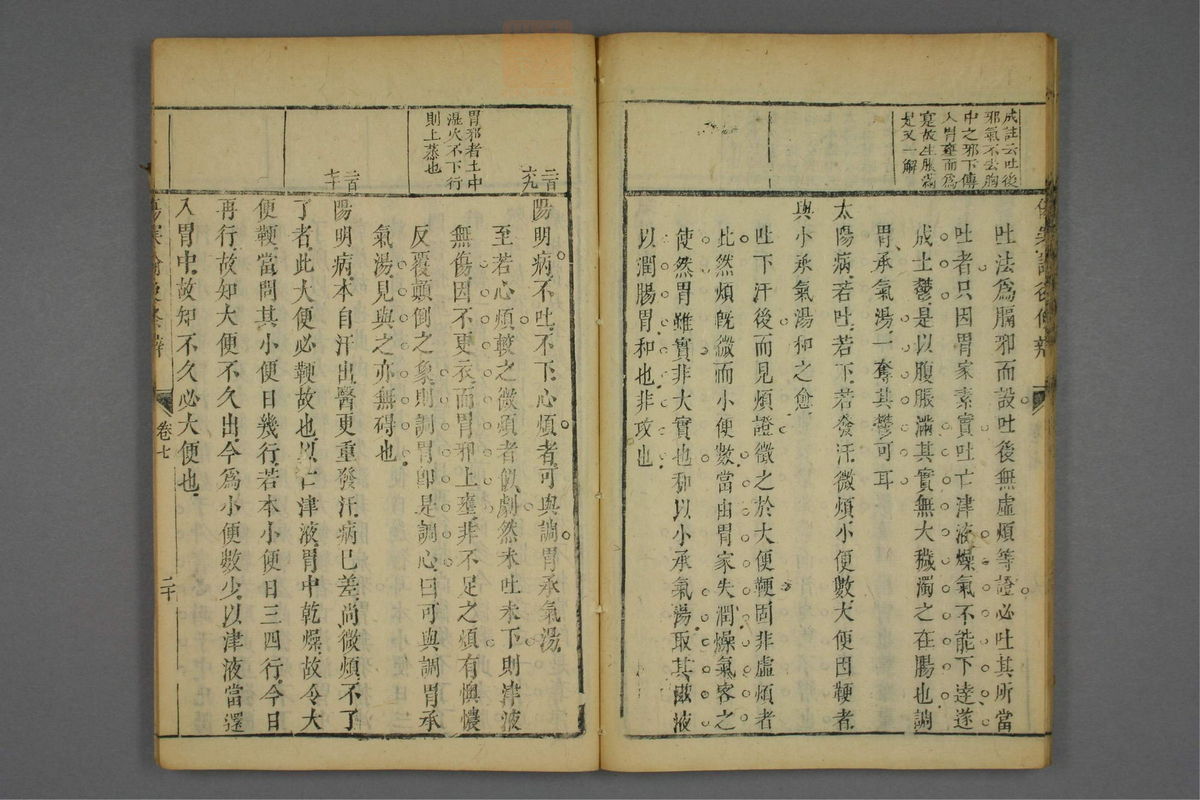 成註云吐後
邪氣不去胸
中之邪下傳
入胃壅而爲
實故生脹滿
是又一解
吐法爲膈邪而設吐後無虛煩等證必吐其所當
吐者只因胃家素實吐亡津液燥氣不能下達遂
成土鬱是以腹脹滿其實無大穢濁之在腸也調
胃承氣湯一奪其鬱可耳
太陽病若吐若下若發汗微煩小便數大便因鞕者
與小承氣湯和之愈
吐下汗後而見煩證徵之於大便鞕固非虛煩者
比然煩旣微而小便數當由胃家失潤燥氣客之
使然胃雖實非大實也和以小承氣湯取其滋液
以潤腸胃和也非攻也
二百
六九
胃邪者土中
濕火不下行
則上蒸也
二百
七十
陽明病不吐不下心煩者可與調胃承氣湯
至若心煩較之微煩者似劇然未吐未下則津液
無傷因不更衣而胃邪上壅非不足之煩有懊憹
反覆顚倒之象則調胃卽是調心曰可與調胃承
氣湯見與之亦無碍也
陽明病本自汗出醫更重發汗病已差尚微煩不了
了者此大便必鞕故也以亡津液胃中乾燥故令大
便鞕當問其小便日幾行若本小便日三四行今日
再行故知大便不久出今爲小便數少以津液當還
入胃中故知不久必大便也
卷七
二十